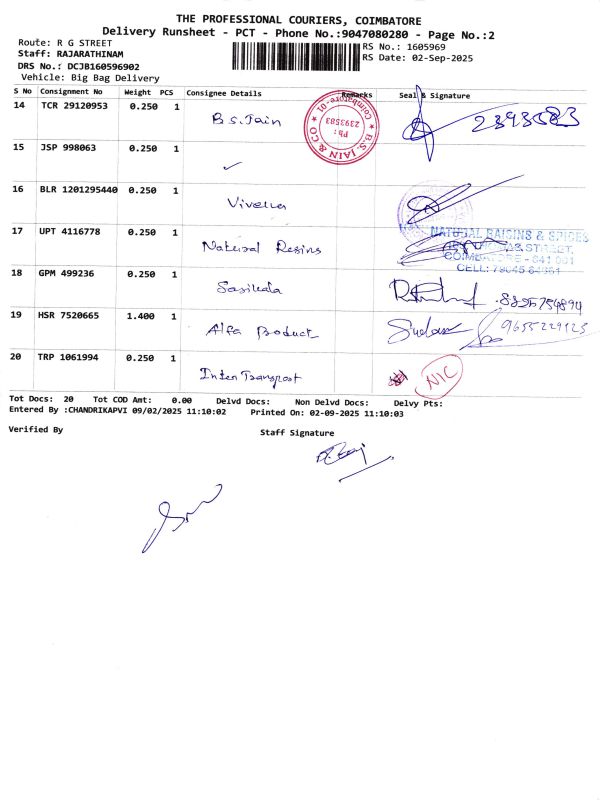 THE PROFESSIONAL COURIERS, COIMBATORE
Delivery Runsheet - PCT - Phone No.:9047080280 - Page No.:2
Route: R G STREET
RS No.: 1605969
Staff: RAJARATHINAM
RS Date: 02-Sep-2025
DRS No.: DCJB160596902
Vehicle: Big Bag Delivery
S No Consignment No Weight PCS Consignee Details Remarks Seal & Signature
14 TCR 29120953 0.250 1 B.S. Jain 2393583
B.S. JAIN & CO Ph: 2393583 Coimbatore-01
15 JSP 998063 0.250 1 ✓
16 BLR 1201295440 0.250 1
17 UPT 4116778 0.250 1 Natural Resins
NATURAL RAISINS & SPICES
STREET,
COIMBATORE - 641 001
CELL:
18 GPM 499236 0.250 1 Sasikala
19 HSR 7520665 1.400 1 Alfa Product
20 TRP 1061994 0.250 1 Inter Transport NIC
Tot Docs: 20 Tot COD Amt: 0.00 Delvd Docs: Non Delvd Docs: Delvy Pts:
Entered By :CHANDRIKAPVI 09/02/2025 11:10:02 Printed On: 02-09-2025 11:10:03
Verified By
Staff Signature